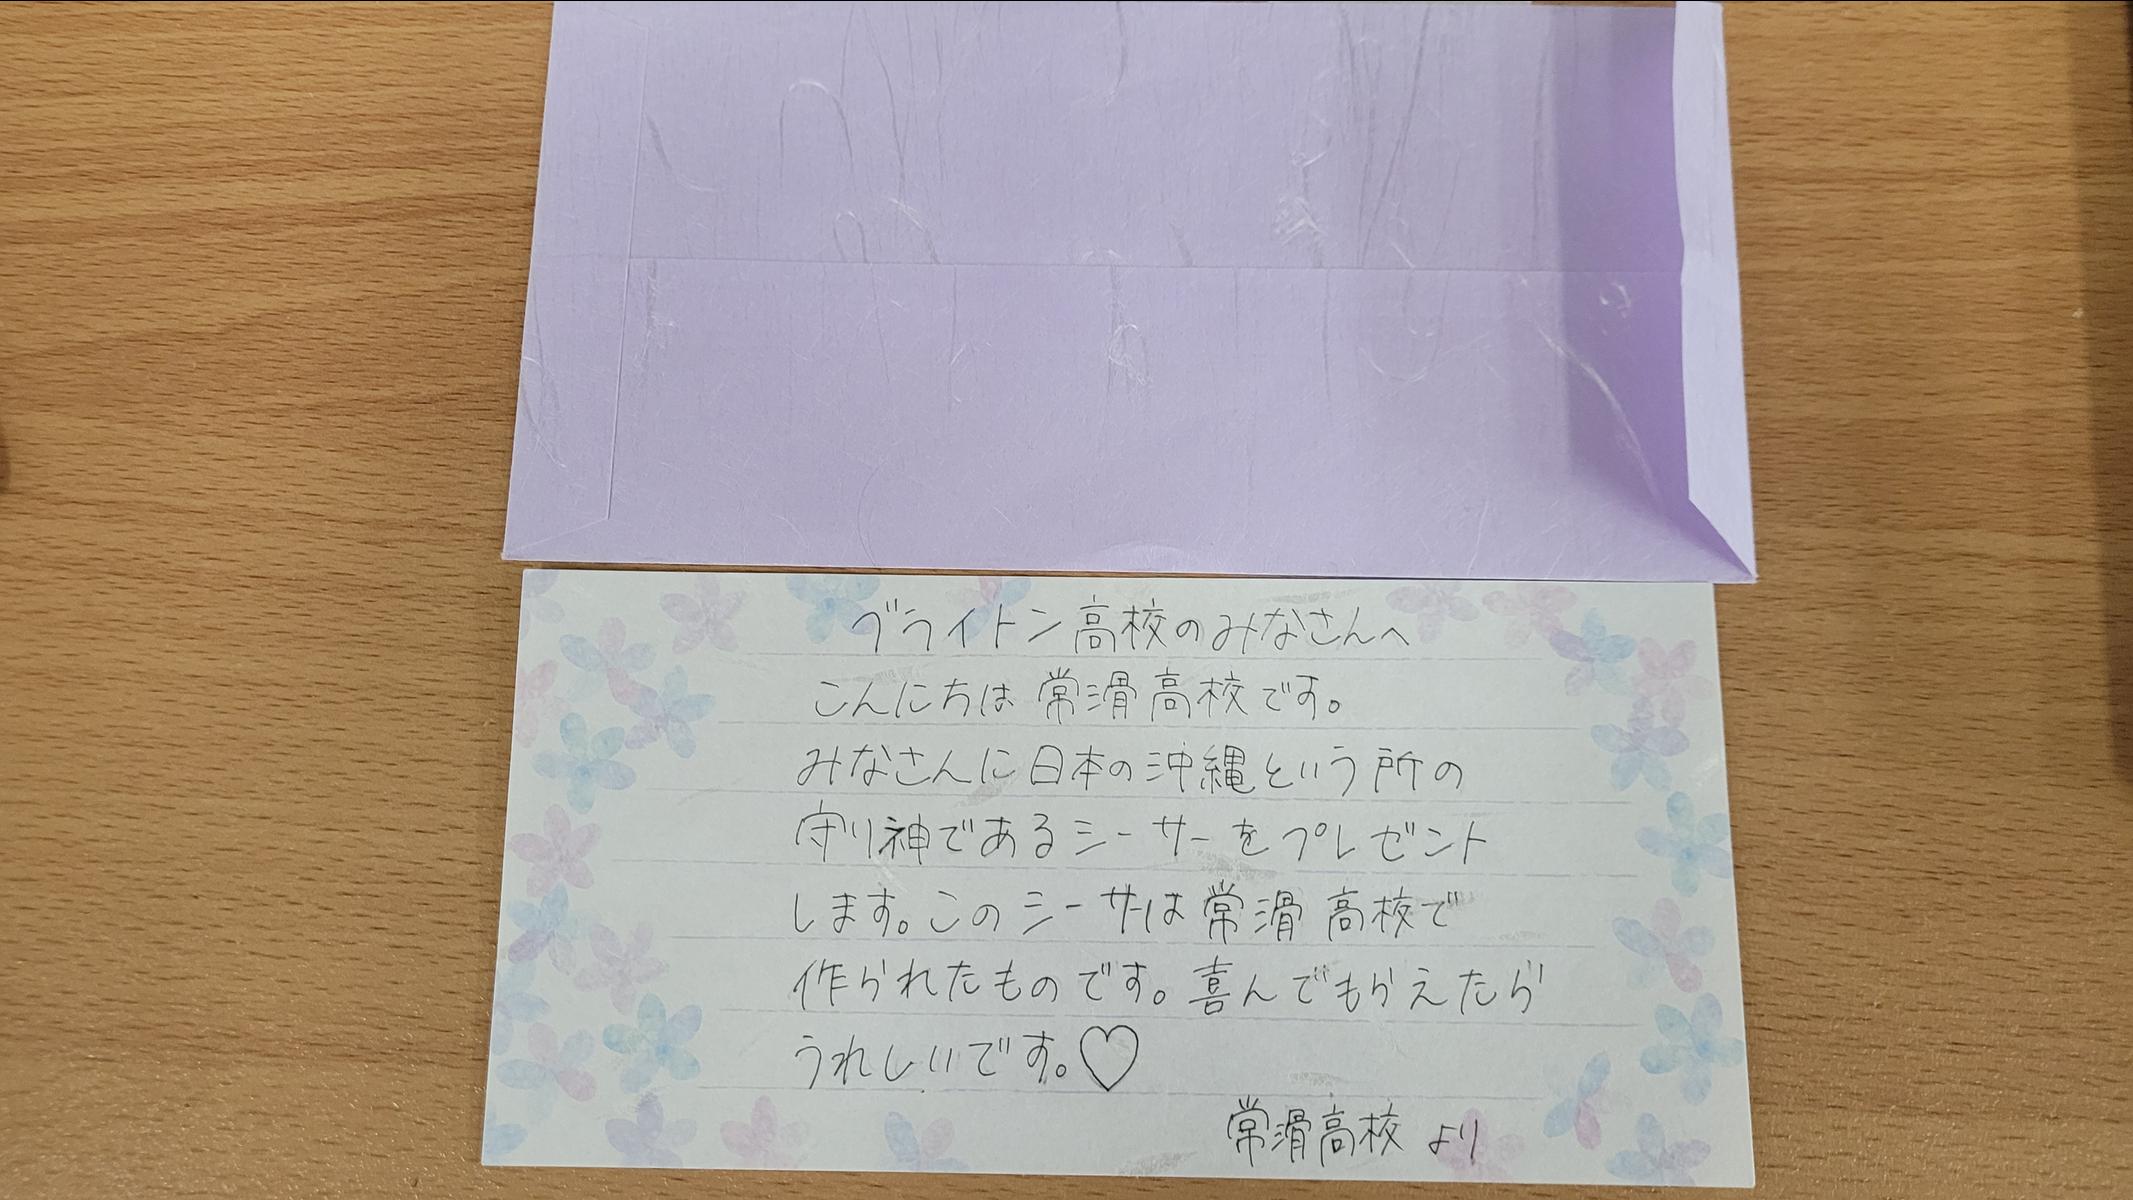 ブライトン高校のみなさんへ
こんにちは 常滑高校です。
みなさんに日本の沖縄という所の
守り神であるシーサーをプレゼント
します。このシーサーは常滑高校で
作られたものです。喜んでもらえたら
うれしいです。♡
常滑高校 より